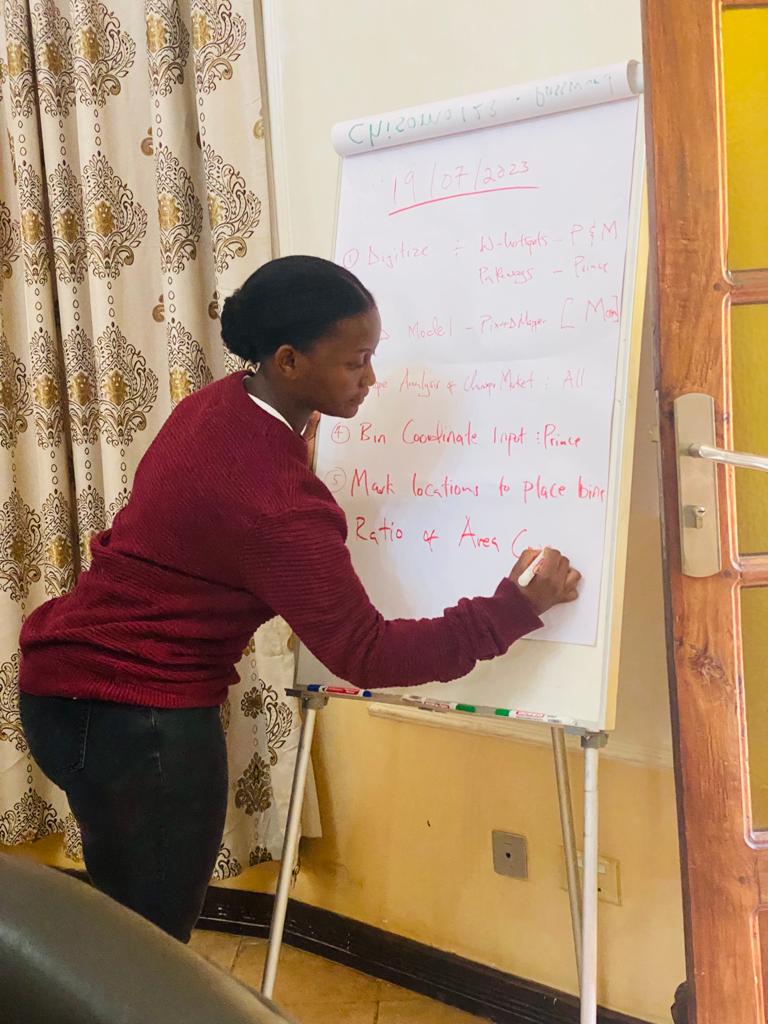 19/07/2023
① Digitize : W-hotspots - P & M
Pathways - Prince
Model - Pix4DMapper [Mam]
Analysis of Change Market : All
④ Bin Coordinate Input : Prince
⑤ Mark locations to place bins
Ratio of Area (